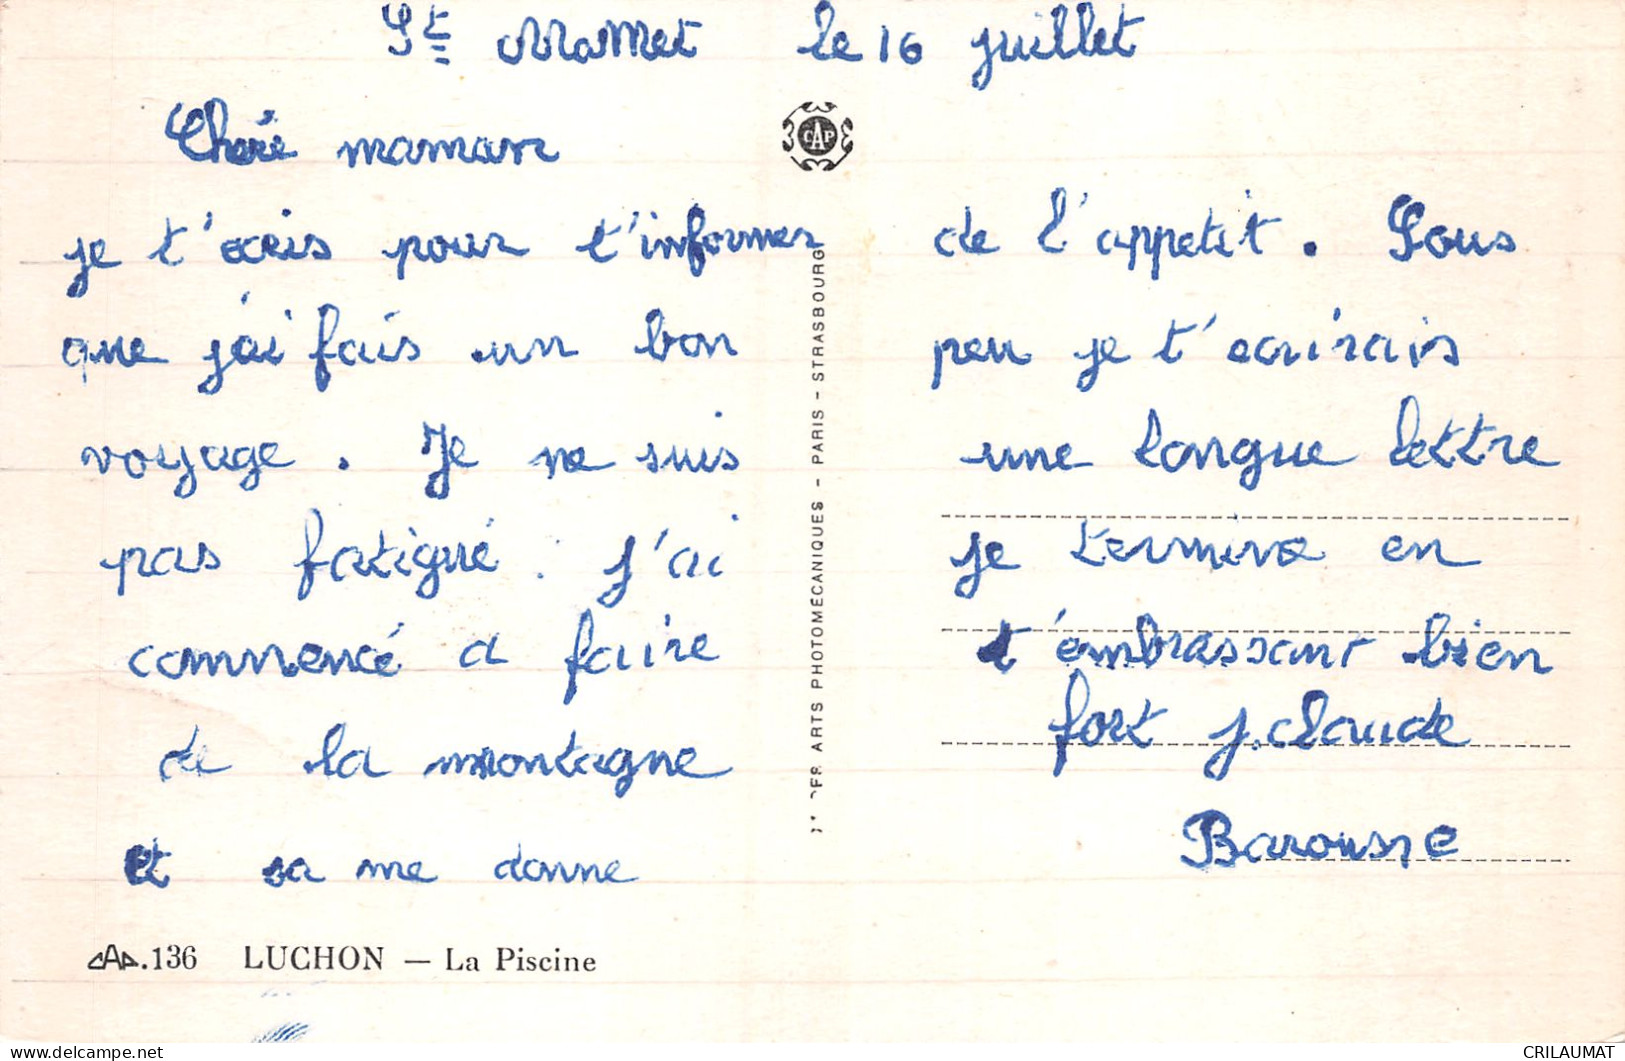 St Mamet le 16 juillet
Cheré maman
je t'ecris pour t'informer
que j'ai fais un bon
voyage. Je ne suis
pas fatigué. j'ai
commencé a faire
de la montagne
et sa me donne
CAP.136 LUCHON — La Piscine
CAP
ARTS PHOTOMÉCANIQUES - PARIS - STRASBOURG
de l'appetit. Sous
peu je t'ecrirais
une longue lettre
je termine en
t'émbrassant bien
fort j.claude
Barousse
delcampe.net
CRILAUMAT